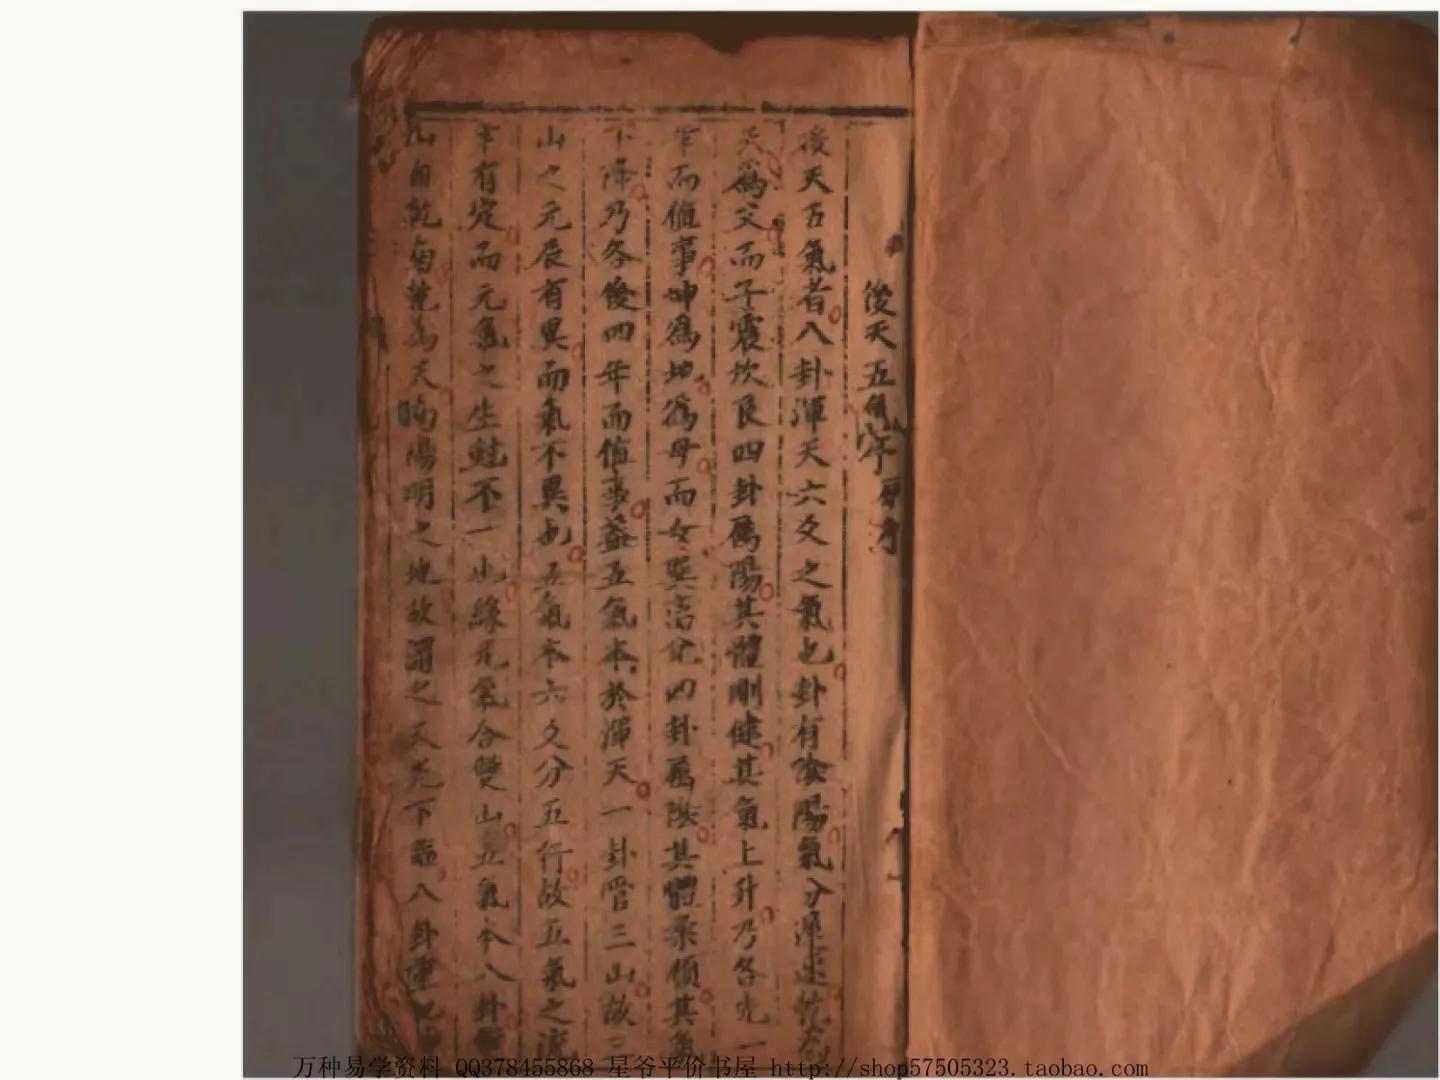 後天五氣
後天五氣者八卦渾天六爻之氣也卦有陰陽氣分
天為父而子震坎艮四卦屬陽其體剛健其氣上升乃各先一
年而值事坤為地為母而女巽离兌四卦屬陰其體柔順其氣
下降乃各後四年而值事葢五氣本於渾天一卦管三山故三
山之元辰有異而氣不異也五氣本六爻分五行故五氣之
年有定而元氣之生蛙不一也緣元氣合雙山五氣本八卦
山自乾為天向陽明之地故謂之天光下臨八卦
万种易学资料 QQ378455868 星爷平价书屋 http://shop57505323.taobao.com